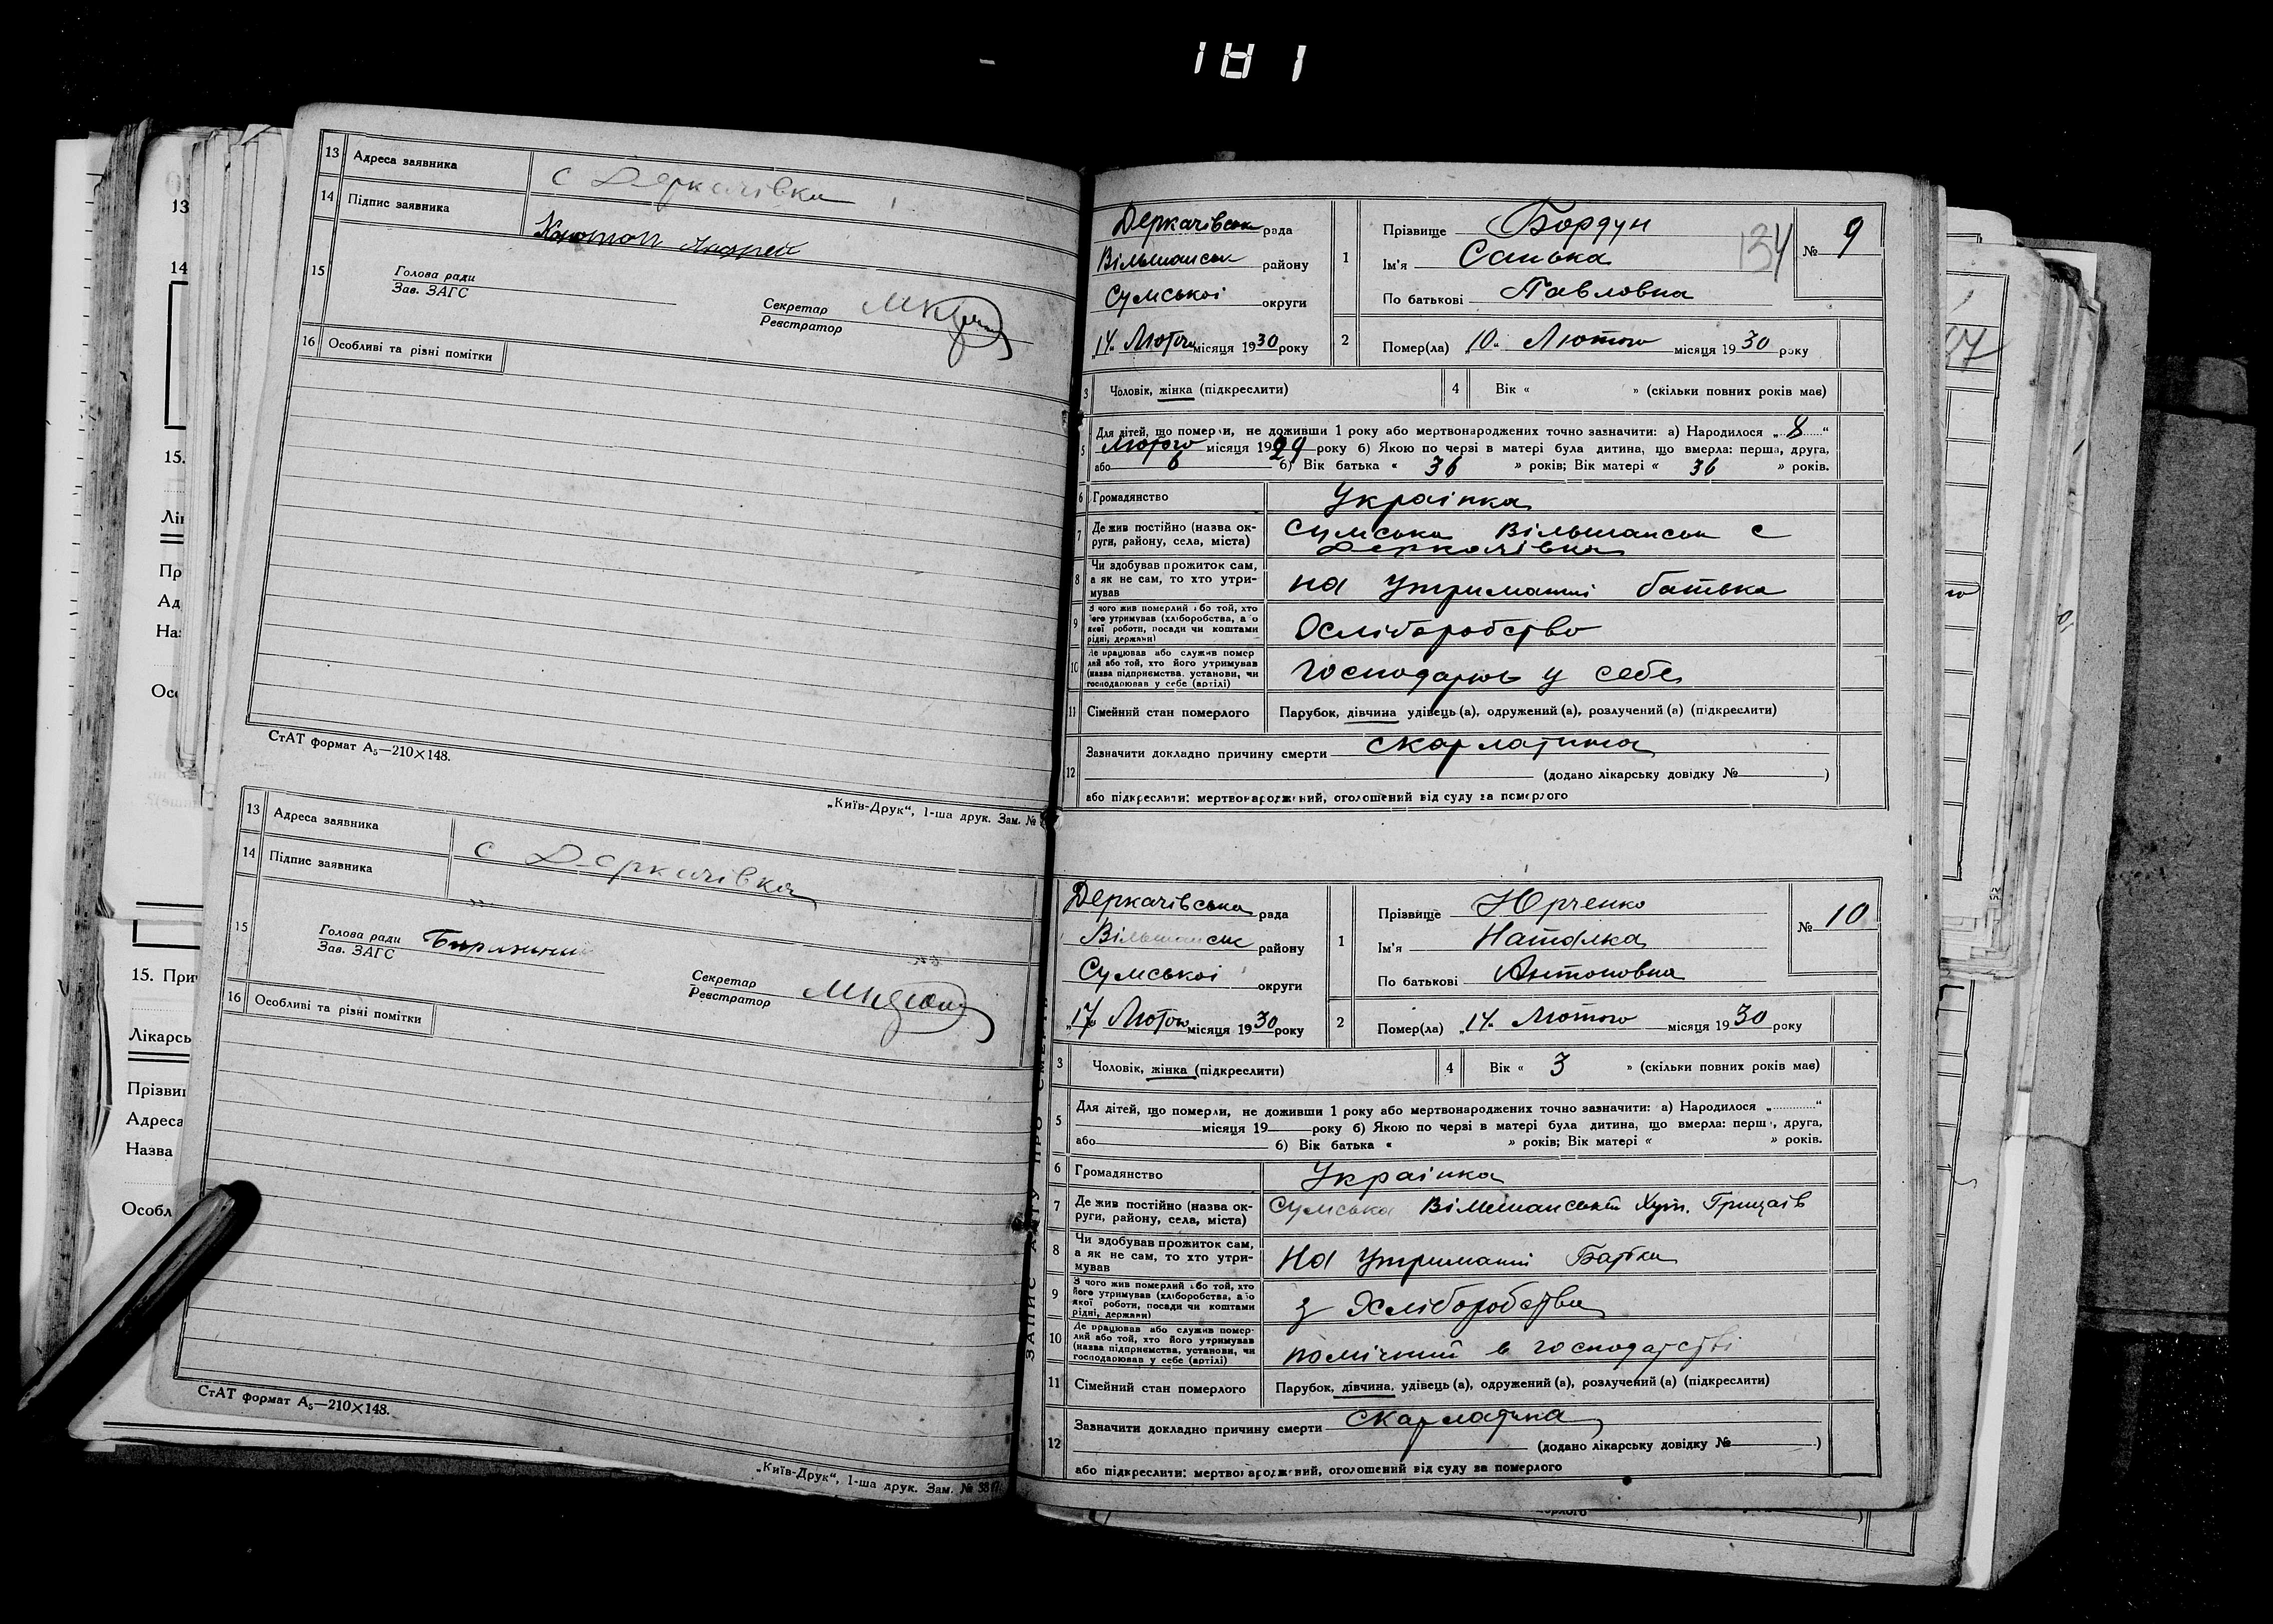 181
13 Адреса заявника с Деркачівка
14 Підпис заявника
15 Голова ради
Зав. ЗАГС
Секретар
Реєстратор
16 Особливі та різні помітки
СтАТ формат А₅—210×148.
„Київ-Друк“, 1-ша друк. Зам. №
13 Адреса заявника с Деркачівка
14 Підпис заявника
15 Голова ради
Зав. ЗАГС
Секретар
Реєстратор
16 Особливі та різні помітки
СтАТ формат А₅—210×148.
„Київ-Друк“, 1-ша друк. Зам. №
13
14
15.
Лі
Пр
Ад
На
Ос
15. При
Лікарсь
Прізви
Адреса
Назва
Особл
Деркачівськ рада
Вільшанськ району
Сумської округи
„14“ Лютого місяця 1930 року
1 Прізвище Бордун
Ім'я Санька
По батькові Павловна
134
№ 9
2 Помер(ла) „10“ Лютого місяця 1930 року
3 Чоловік, жінка (підкреслити)
4 Вік « » (скільки повних років має)
5 Для дітей, що померли, не доживши 1 року або мертвонароджених точно зазначити: а) Народилося „8“
Лютого місяця 1929 року б) Якою по черзі в матері була дитина, що вмерла: перша, друга,
або 6 б) Вік батька « 36 » років; Вік матері « 36 » років.
6 Громадянство Українка
7 Де жив постійно (назва ок-
руги, району, села, міста) Сумська Вільшанськ с
Деркачівка
8 Чи здобував прожиток сам,
а як не сам, то хто утри-
мував на утриманні батька
9 З чого жив померлий або той, хто
його утримував (хліборобства, або
якої роботи, посади чи коштами
рідні, держави) Хліборобство
10 Де працював або служив помер
лий або той, хто його утримував
(назва підприємства, установи, чи
господарював у себе (артілі) господарює у себе
11 Сімейний стан померлого Парубок, дівчина удівець (а), одружений (а), розлучений (а) (підкреслити)
12 Зазначити докладно причину смерти скарлатина
(додано лікарську довідку № )
або підкреслити: мертвонароджений, оголошений від суду за померлого
Деркачівська рада
Вільшанськ району
Сумської округи
„17“ Лютого місяця 1930 року
1 Прізвище Юрченко
Ім'я Наталка
По батькові Антоновна
№ 10
2 Помер(ла) „14“ Лютого місяця 1930 року
3 Чоловік, жінка (підкреслити)
4 Вік « 3 » (скільки повних років має)
5 Для дітей, що померли, не доживши 1 року або мертвонароджених точно зазначити: а) Народилося „ “
місяця 19 року б) Якою по черзі в матері була дитина, що вмерла: перш , друга,
або б) Вік батька « » років; Вік матері « » років.
6 Громадянство Українка
7 Де жив постійно (назва ок-
руги, району, села, міста) Сумська Хут. Грицаів
8 Чи здобував прожиток сам,
а як не сам, то хто утри-
мував на утриманні Батька
9 З чого жив померлий або той, хто
його утримував (хліборобства, або
якої роботи, посади чи коштами
рідні, держави) з Хліборобства
10 Де працював або служив помер-
лий або той, хто його утримував
(назва підприємства, установи, чи
господарював у себе (артілі) в господарстві
11 Сімейний стан померлого Парубок, дівчина, удівець (а), одружений (а), розлучений (а) (підкреслити)
12 Зазначити докладно причину смерти Скарлатина
(додано лікарську довідку № )
або підкреслити: мертвонароджений, оголошений від суду за померлого